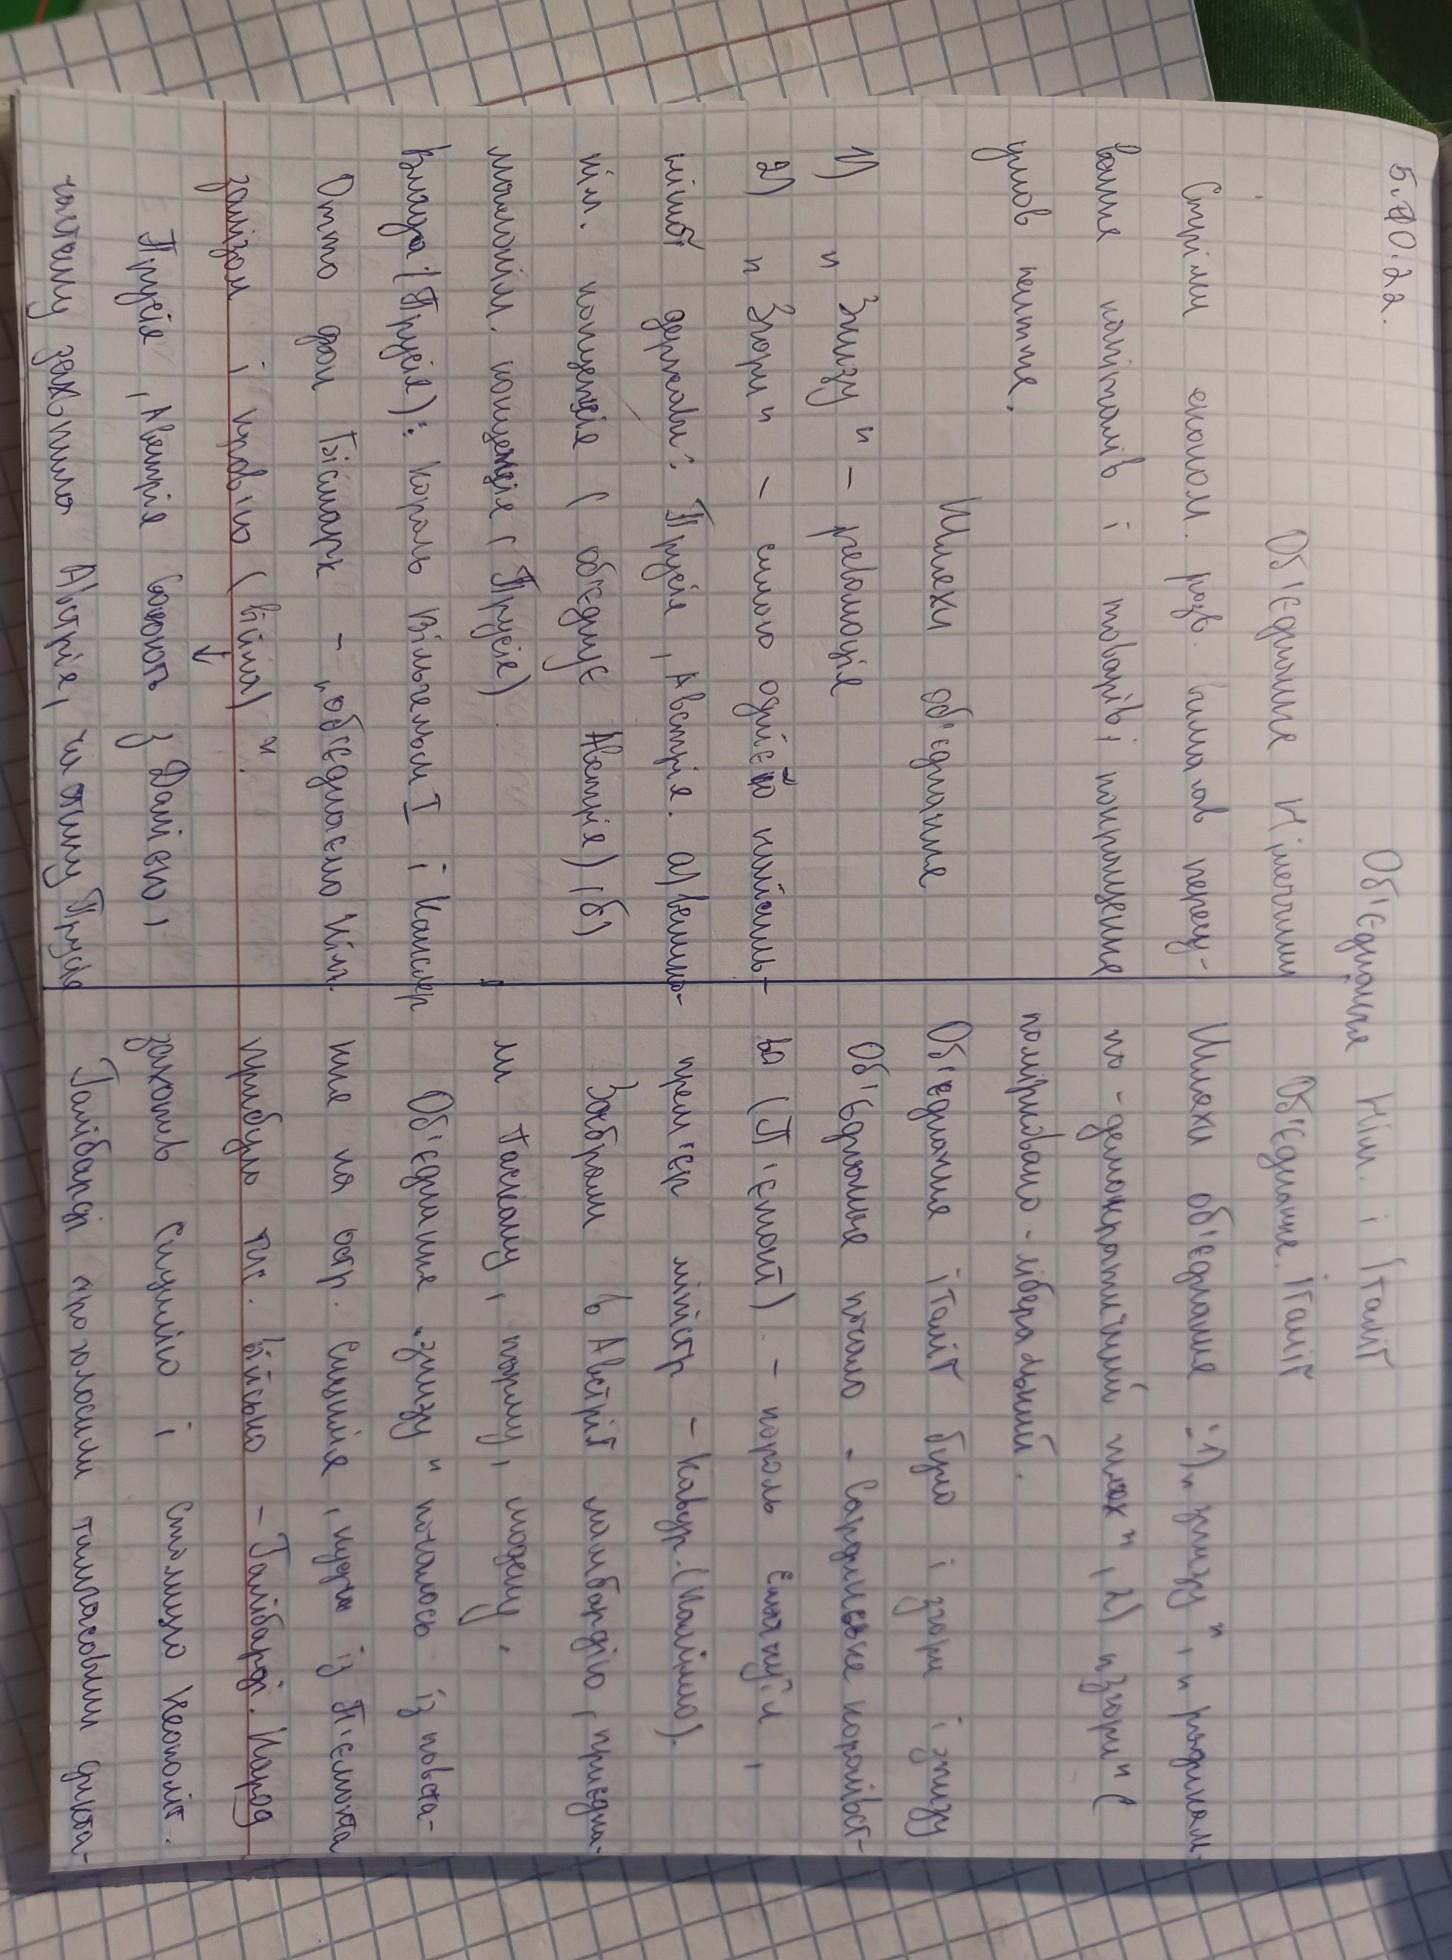 5.10.22.
Об'єднання Нім. і Італії
Об'єднання Німеччини
Стрімки економ. розв. вимагав перещ-
вання капіталів і товарів, покращення
умов життя.
Шляхи об'єднання
1) "Знизу" – революція
2) "Згори" – силою однієї найсиль-
нішої держави: Прусія, Австрія. а) велико-
нім. концепція (об'єднує Австрія), б)
малонім. концепція (Прусія).
Влада (Прусія): Король Вільгельм I і Канслер
Отто фон Бісмарк – "об'єднаємо Нім.
залізом і кров'ю (війна)".
Прусія, Австрія воюють з Данією,
частину захопила Австрія, частину Прусія
Об'єднання Італії
Шляхи об'єднання: 1) "знизу", "радикал.
но-демократичний шлях", 2) "згори" (
помірковано-ліберальний.
Об'єднання Італії було і згори і знизу
Об'єднання почало - Сардинське королівст-
во (П'ємонт). – король Емануїл,
прем'єр міністр – Кавур. (Камілло).
Забрали в Австрії ламбардію, приєдна-
ли Таскану, парму, модену,
Об'єднання "знизу" почалось із повста-
ння на остр. Сицилія, куди із П'ємонта
прибуло тис. військо – Гарібарді. Народ
захопив Сицилію і столицю Неополіт.
Гарібарді проголосили тимчасовим дикта-